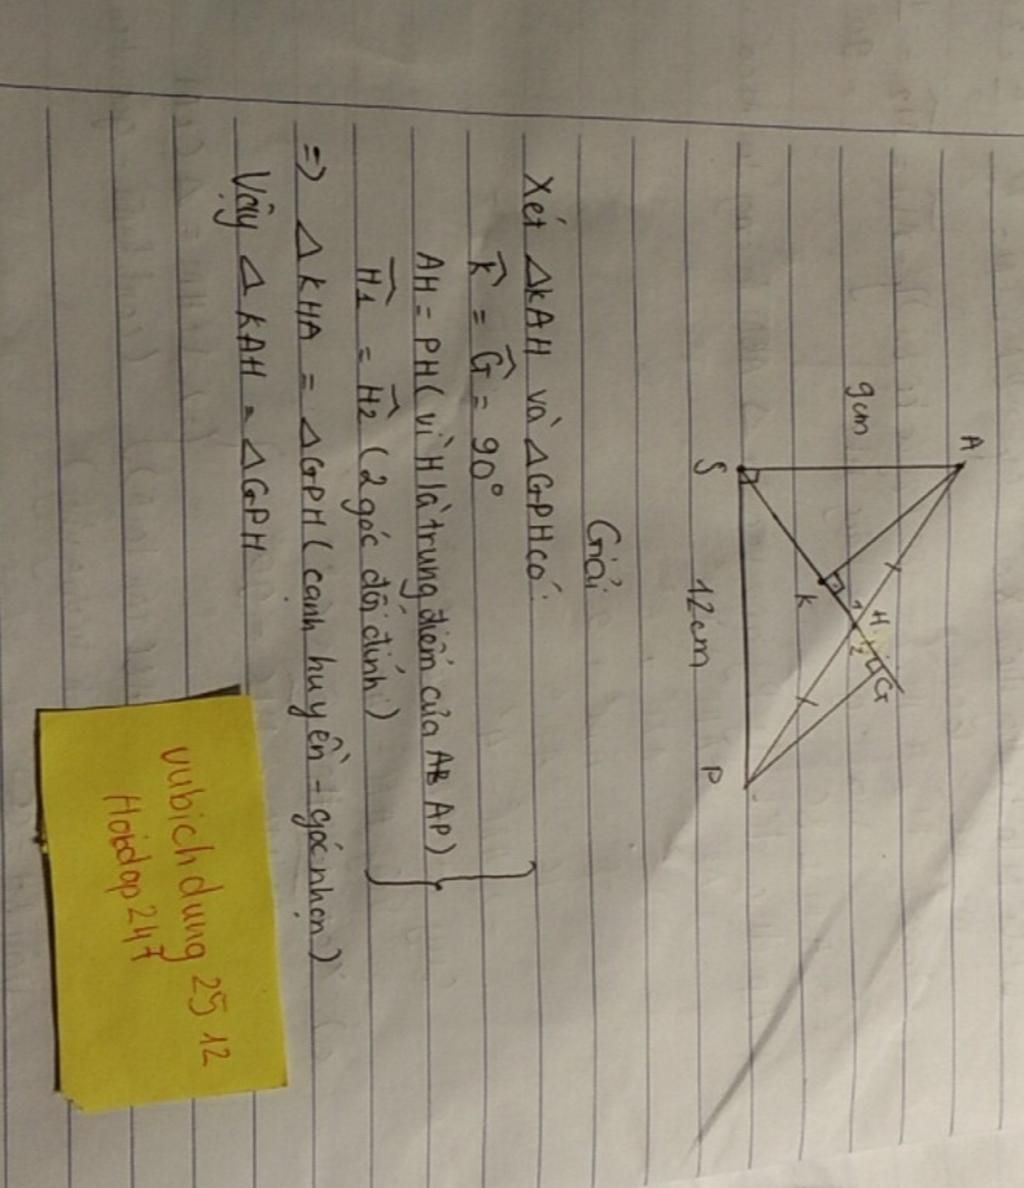 A
9cm
H
1
2
G
K
S
12cm
P
Giải
Xét ΔKAH và ΔGPH có:
K̂ = Ĝ = 90°
AH = PH (vì H là trung điểm của AP)
Ĥ1 = Ĥ2 (2 góc đối đỉnh)
=> ΔKHA = ΔGPH (cạnh huyền - góc nhọn)
Vậy ΔKAH = ΔGPH
vubichdung 25 12
Hoidap247